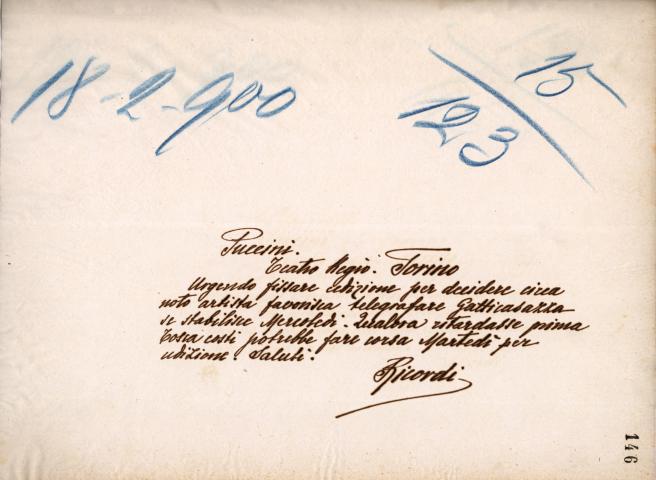 18-2-900
15
123
Puccini.
Teatro Regio. Torino
Urgendo fissare udizione per decidere circa
noto artista favorisca telegrafare Gatticasazza
se stabilisce Mercoledì. Qualora ritardasse prima
Tosca costì potrebbe fare corsa Martedì per
udizione. Saluti.
Ricordi
146